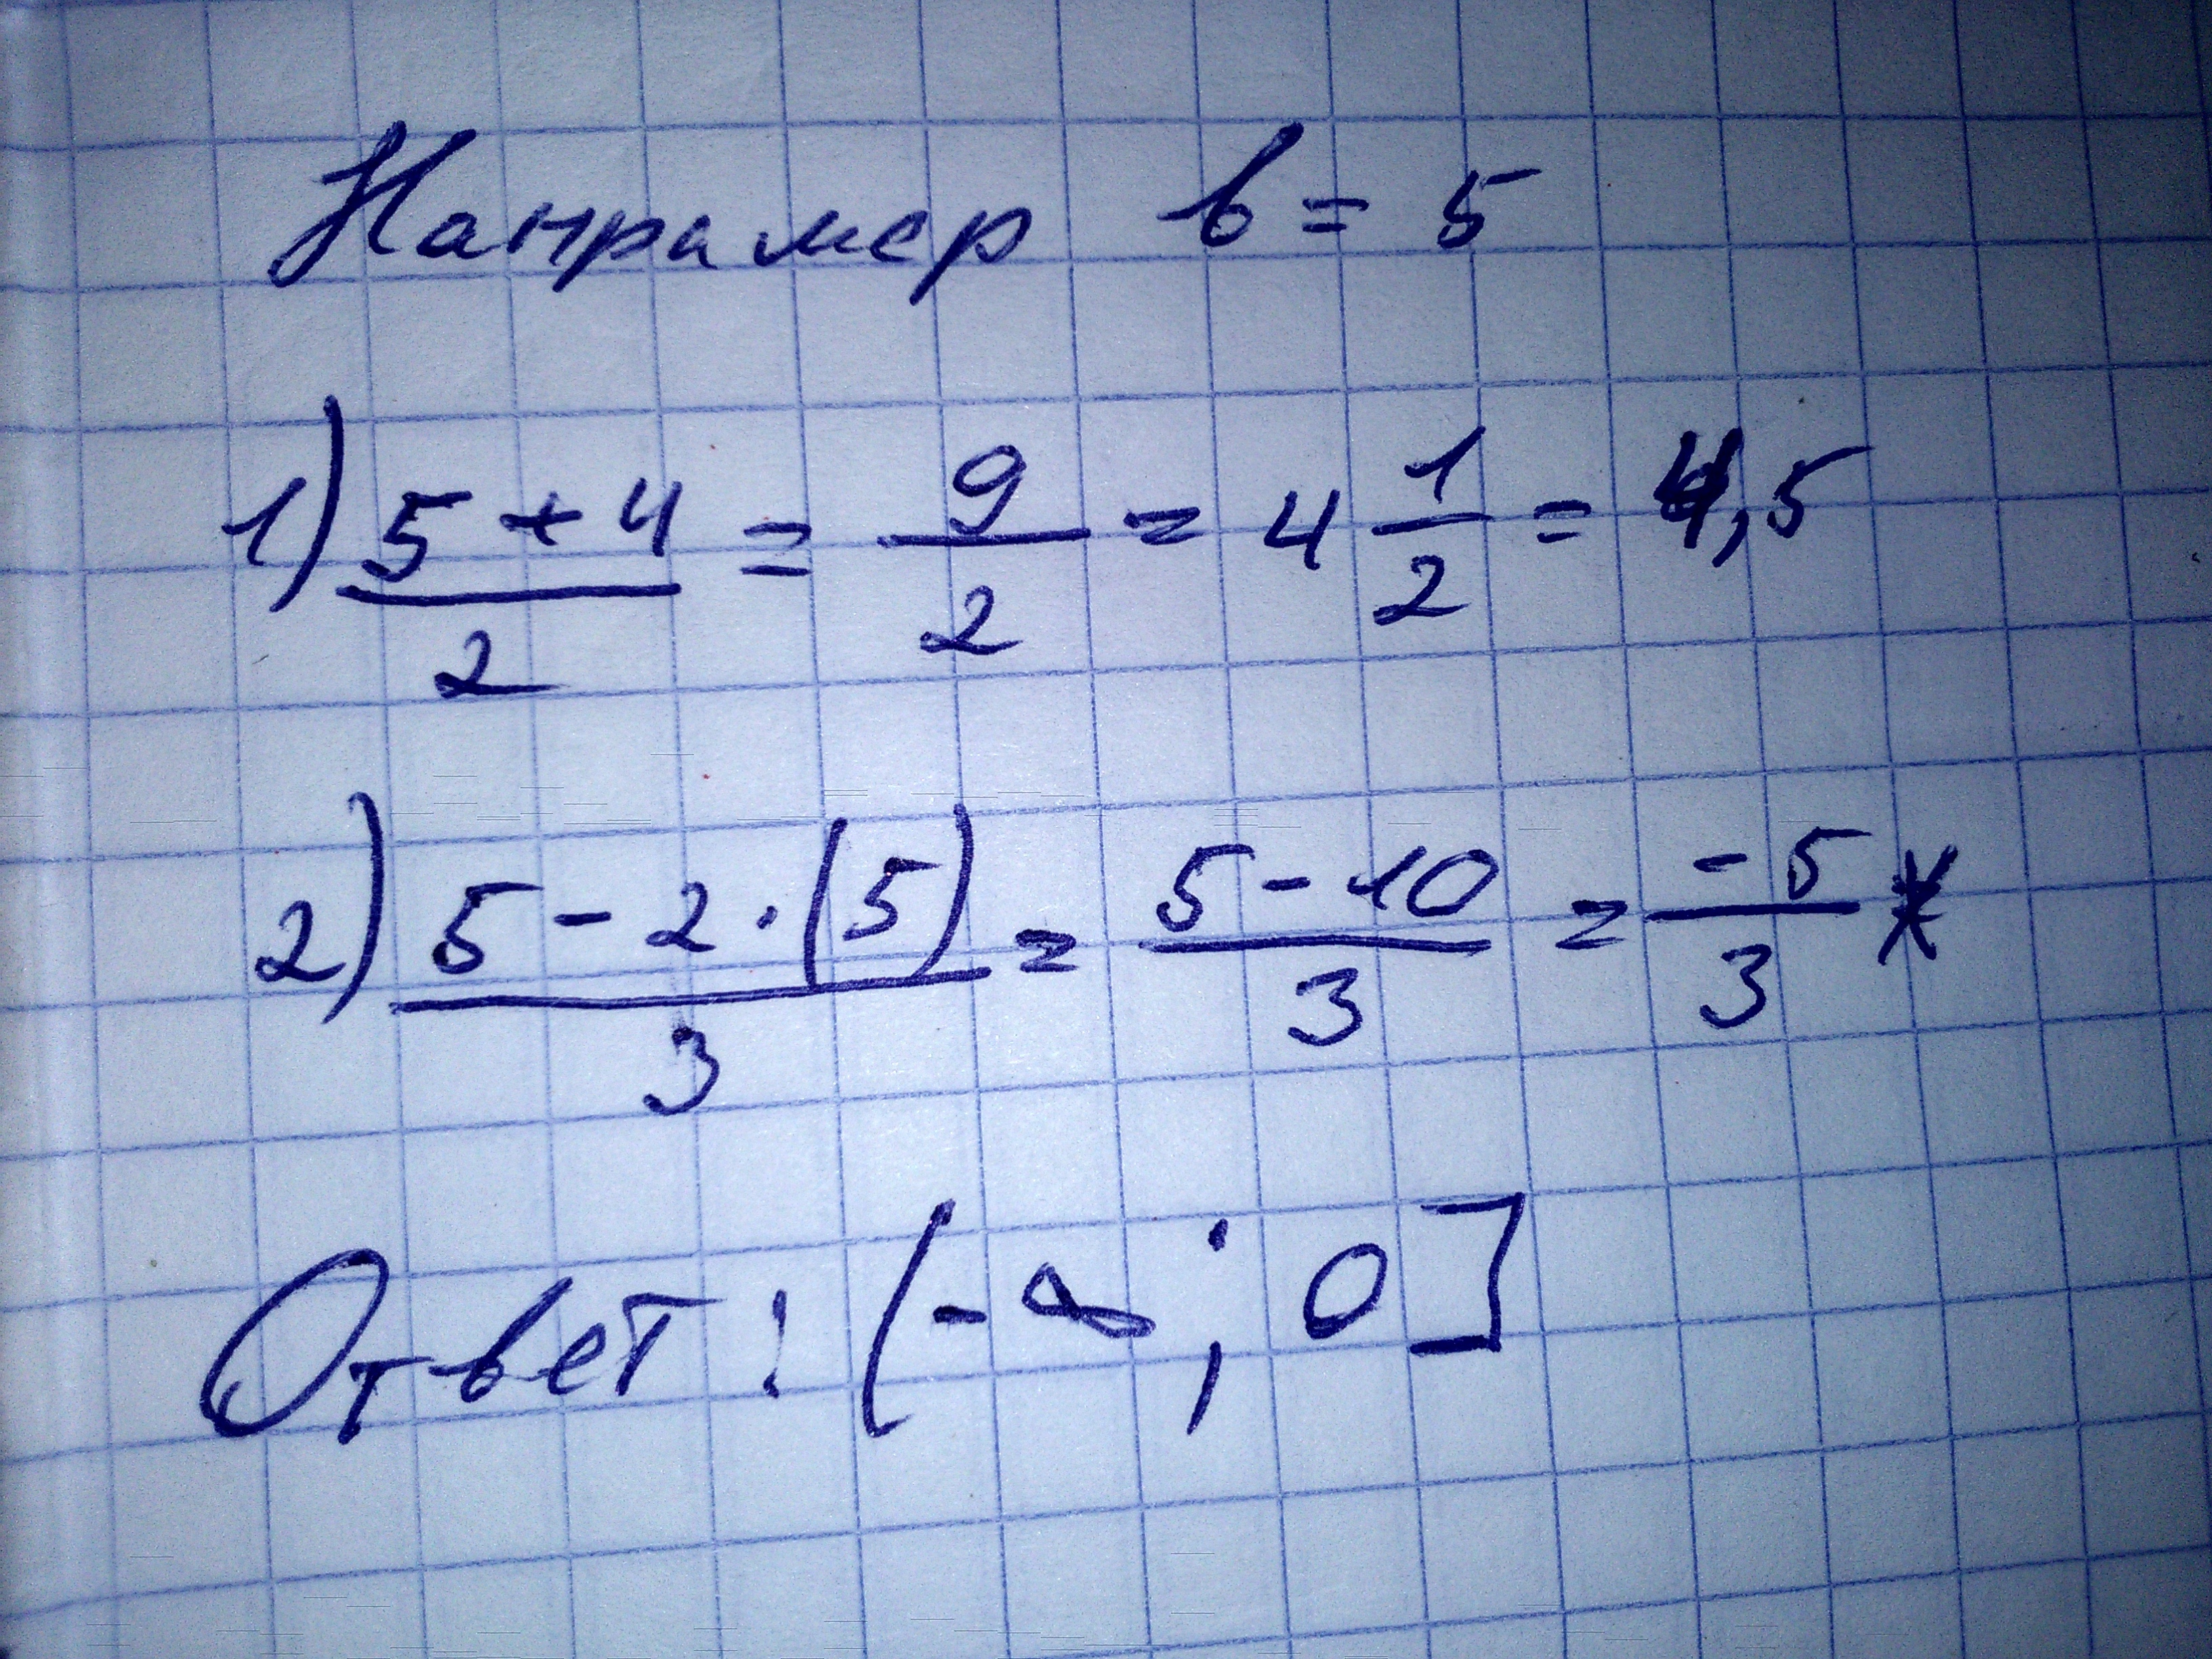 Например в = 5
1) (5 + 4)/2 = 9/2 = 4 1/2 = 4,5
2) (5 - 2 · (5))/3 = (5 - 10)/3 = -5/3 *
Ответ: (-∞; 0]